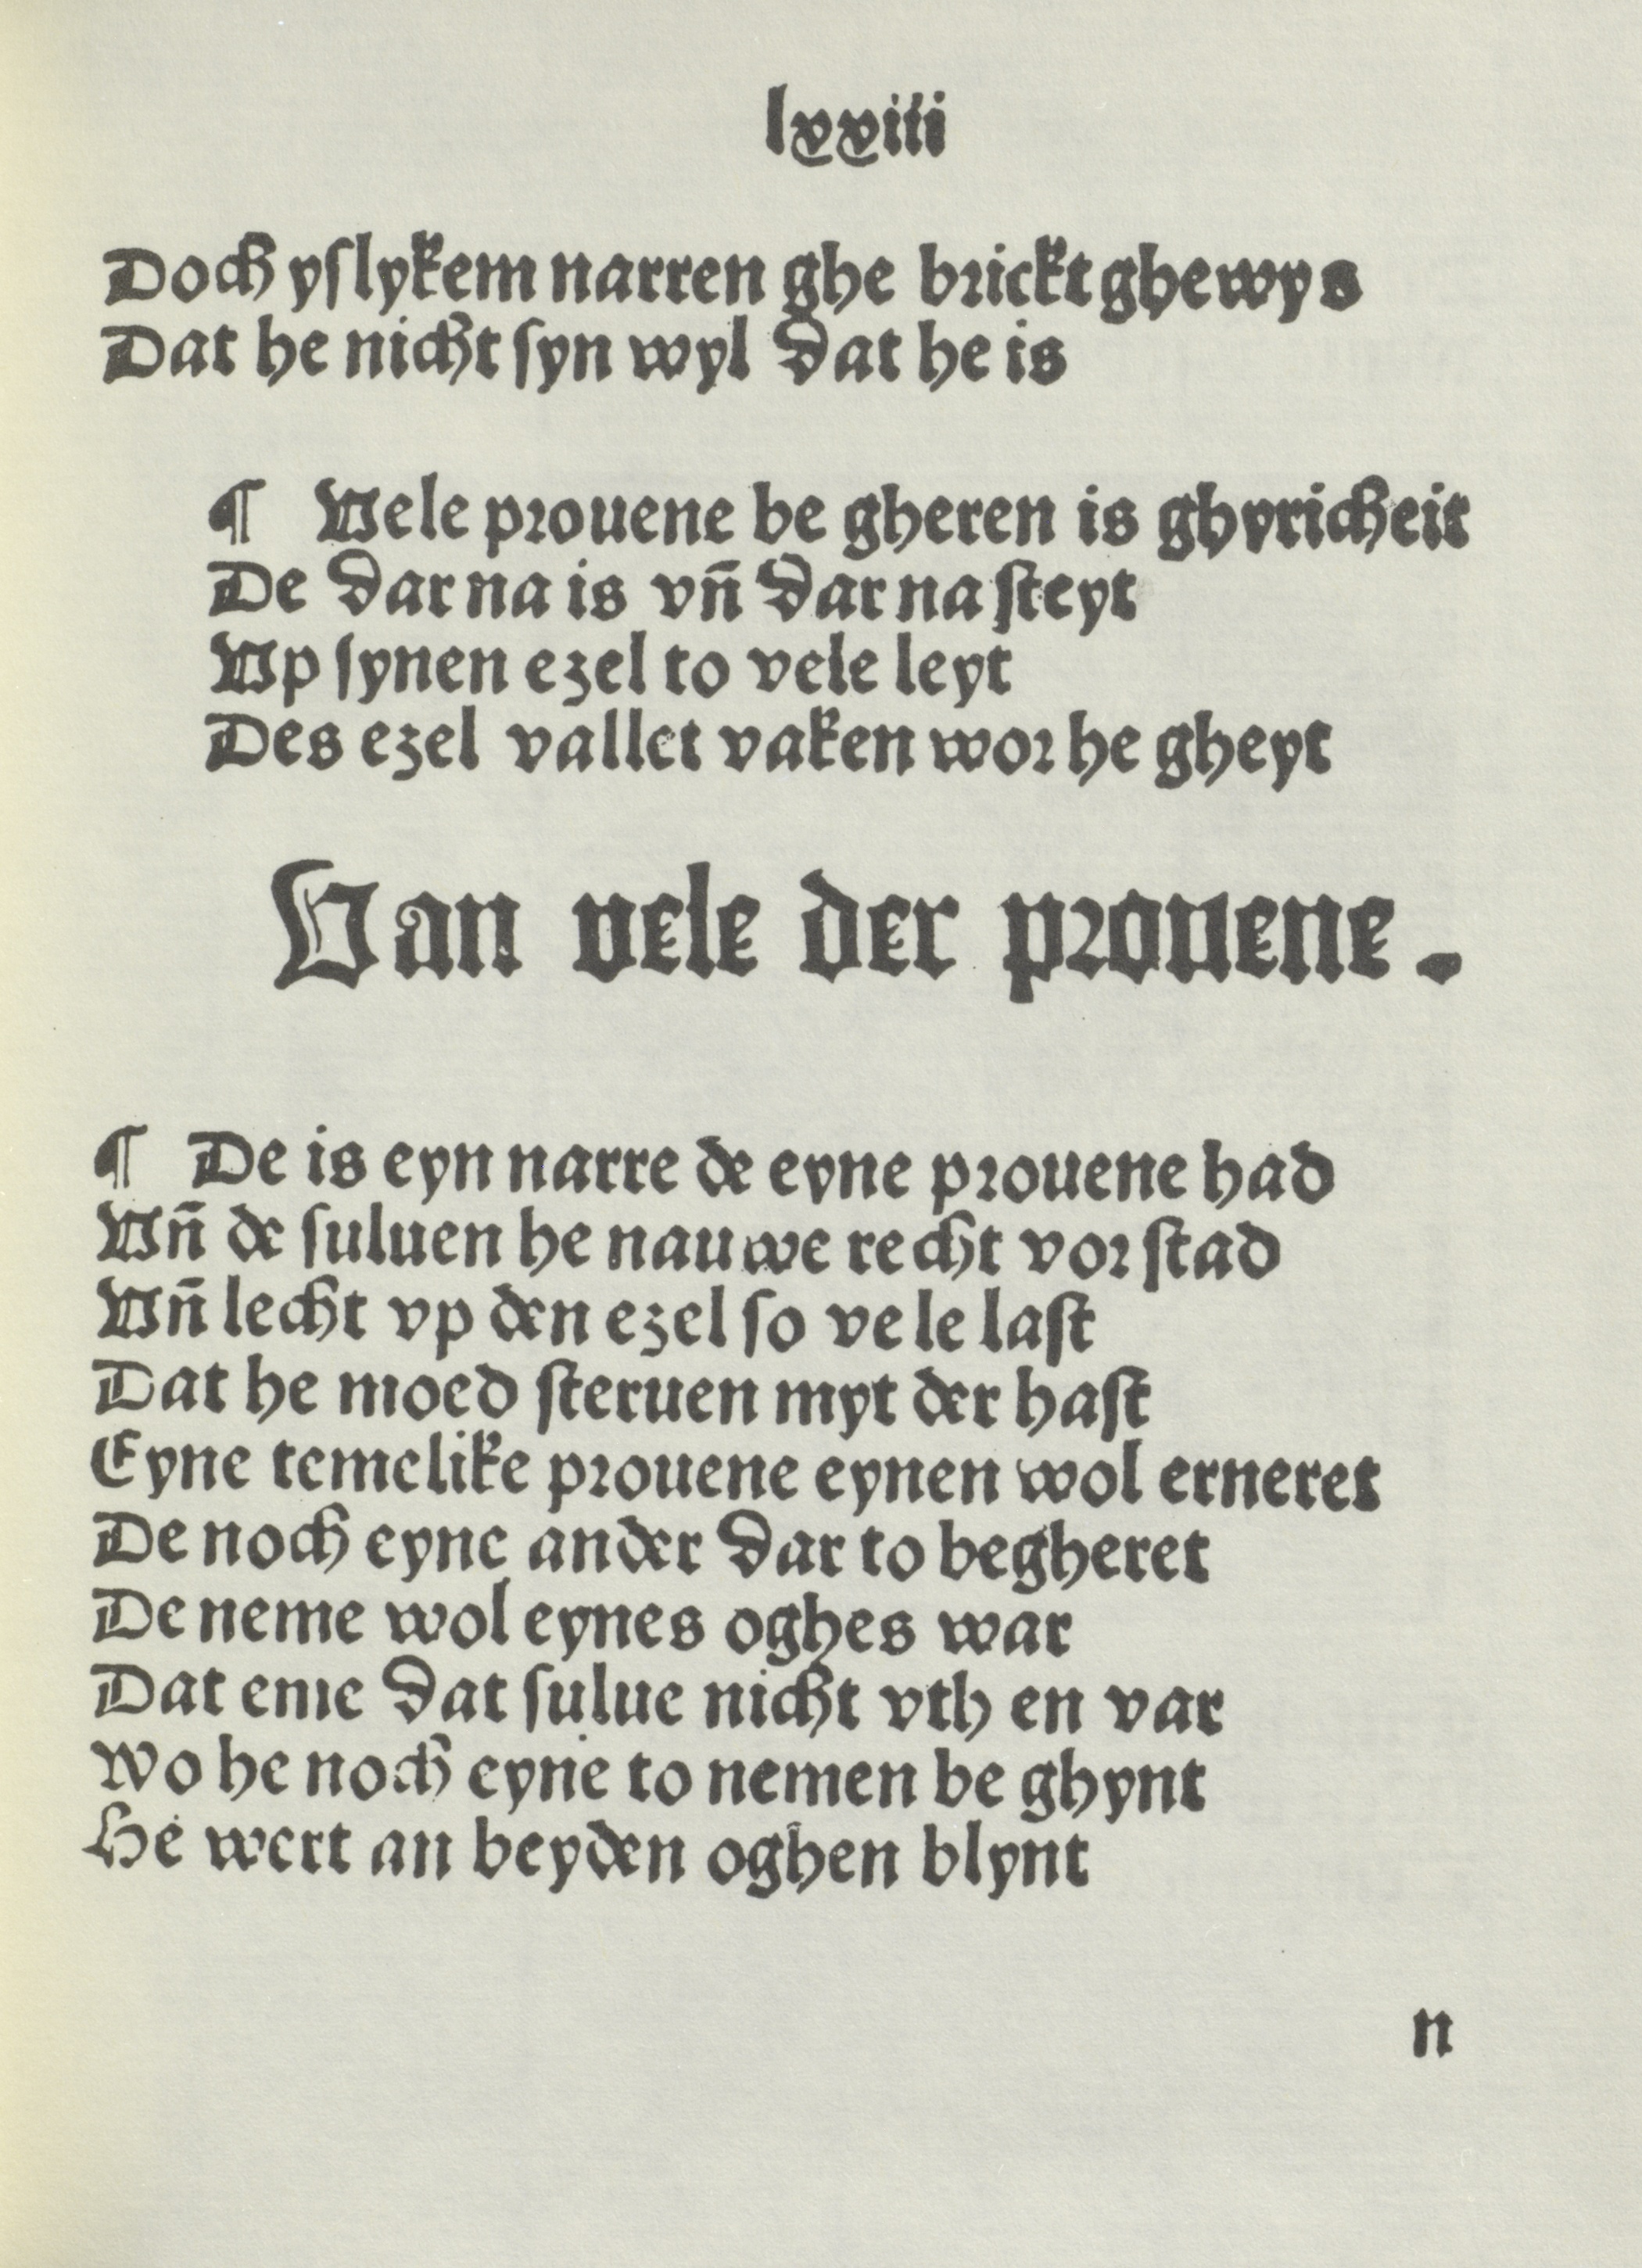 lxxiii
Doch yſlykem narren ghe brickt ghewys
Dat he nicht ſyn wyl dat he is
¶ Vele prouene be gheren is ghyricheit
De dar na is vñ dar na ſteyt
Vp ſynen ezel to vele leyt
Des ezel vallet vaken wor he gheyt
Van vele der prouene.
¶ De is eyn narre de eyne prouene had
Vñ de ſuluen he nauwe recht vor ſtad
Vñ lecht vp den ezel ſo vele laſt
Dat he moed ſteruen myt der haſt
Eyne temelike prouene eynen wol erneret
De noch eyne ander dar to begheret
De neme wol eynes oghes war
Dat eme dat ſulue nicht vth en var
Wo he noch eyne to nemen be ghynt
He wert an beyden oghen blynt
n